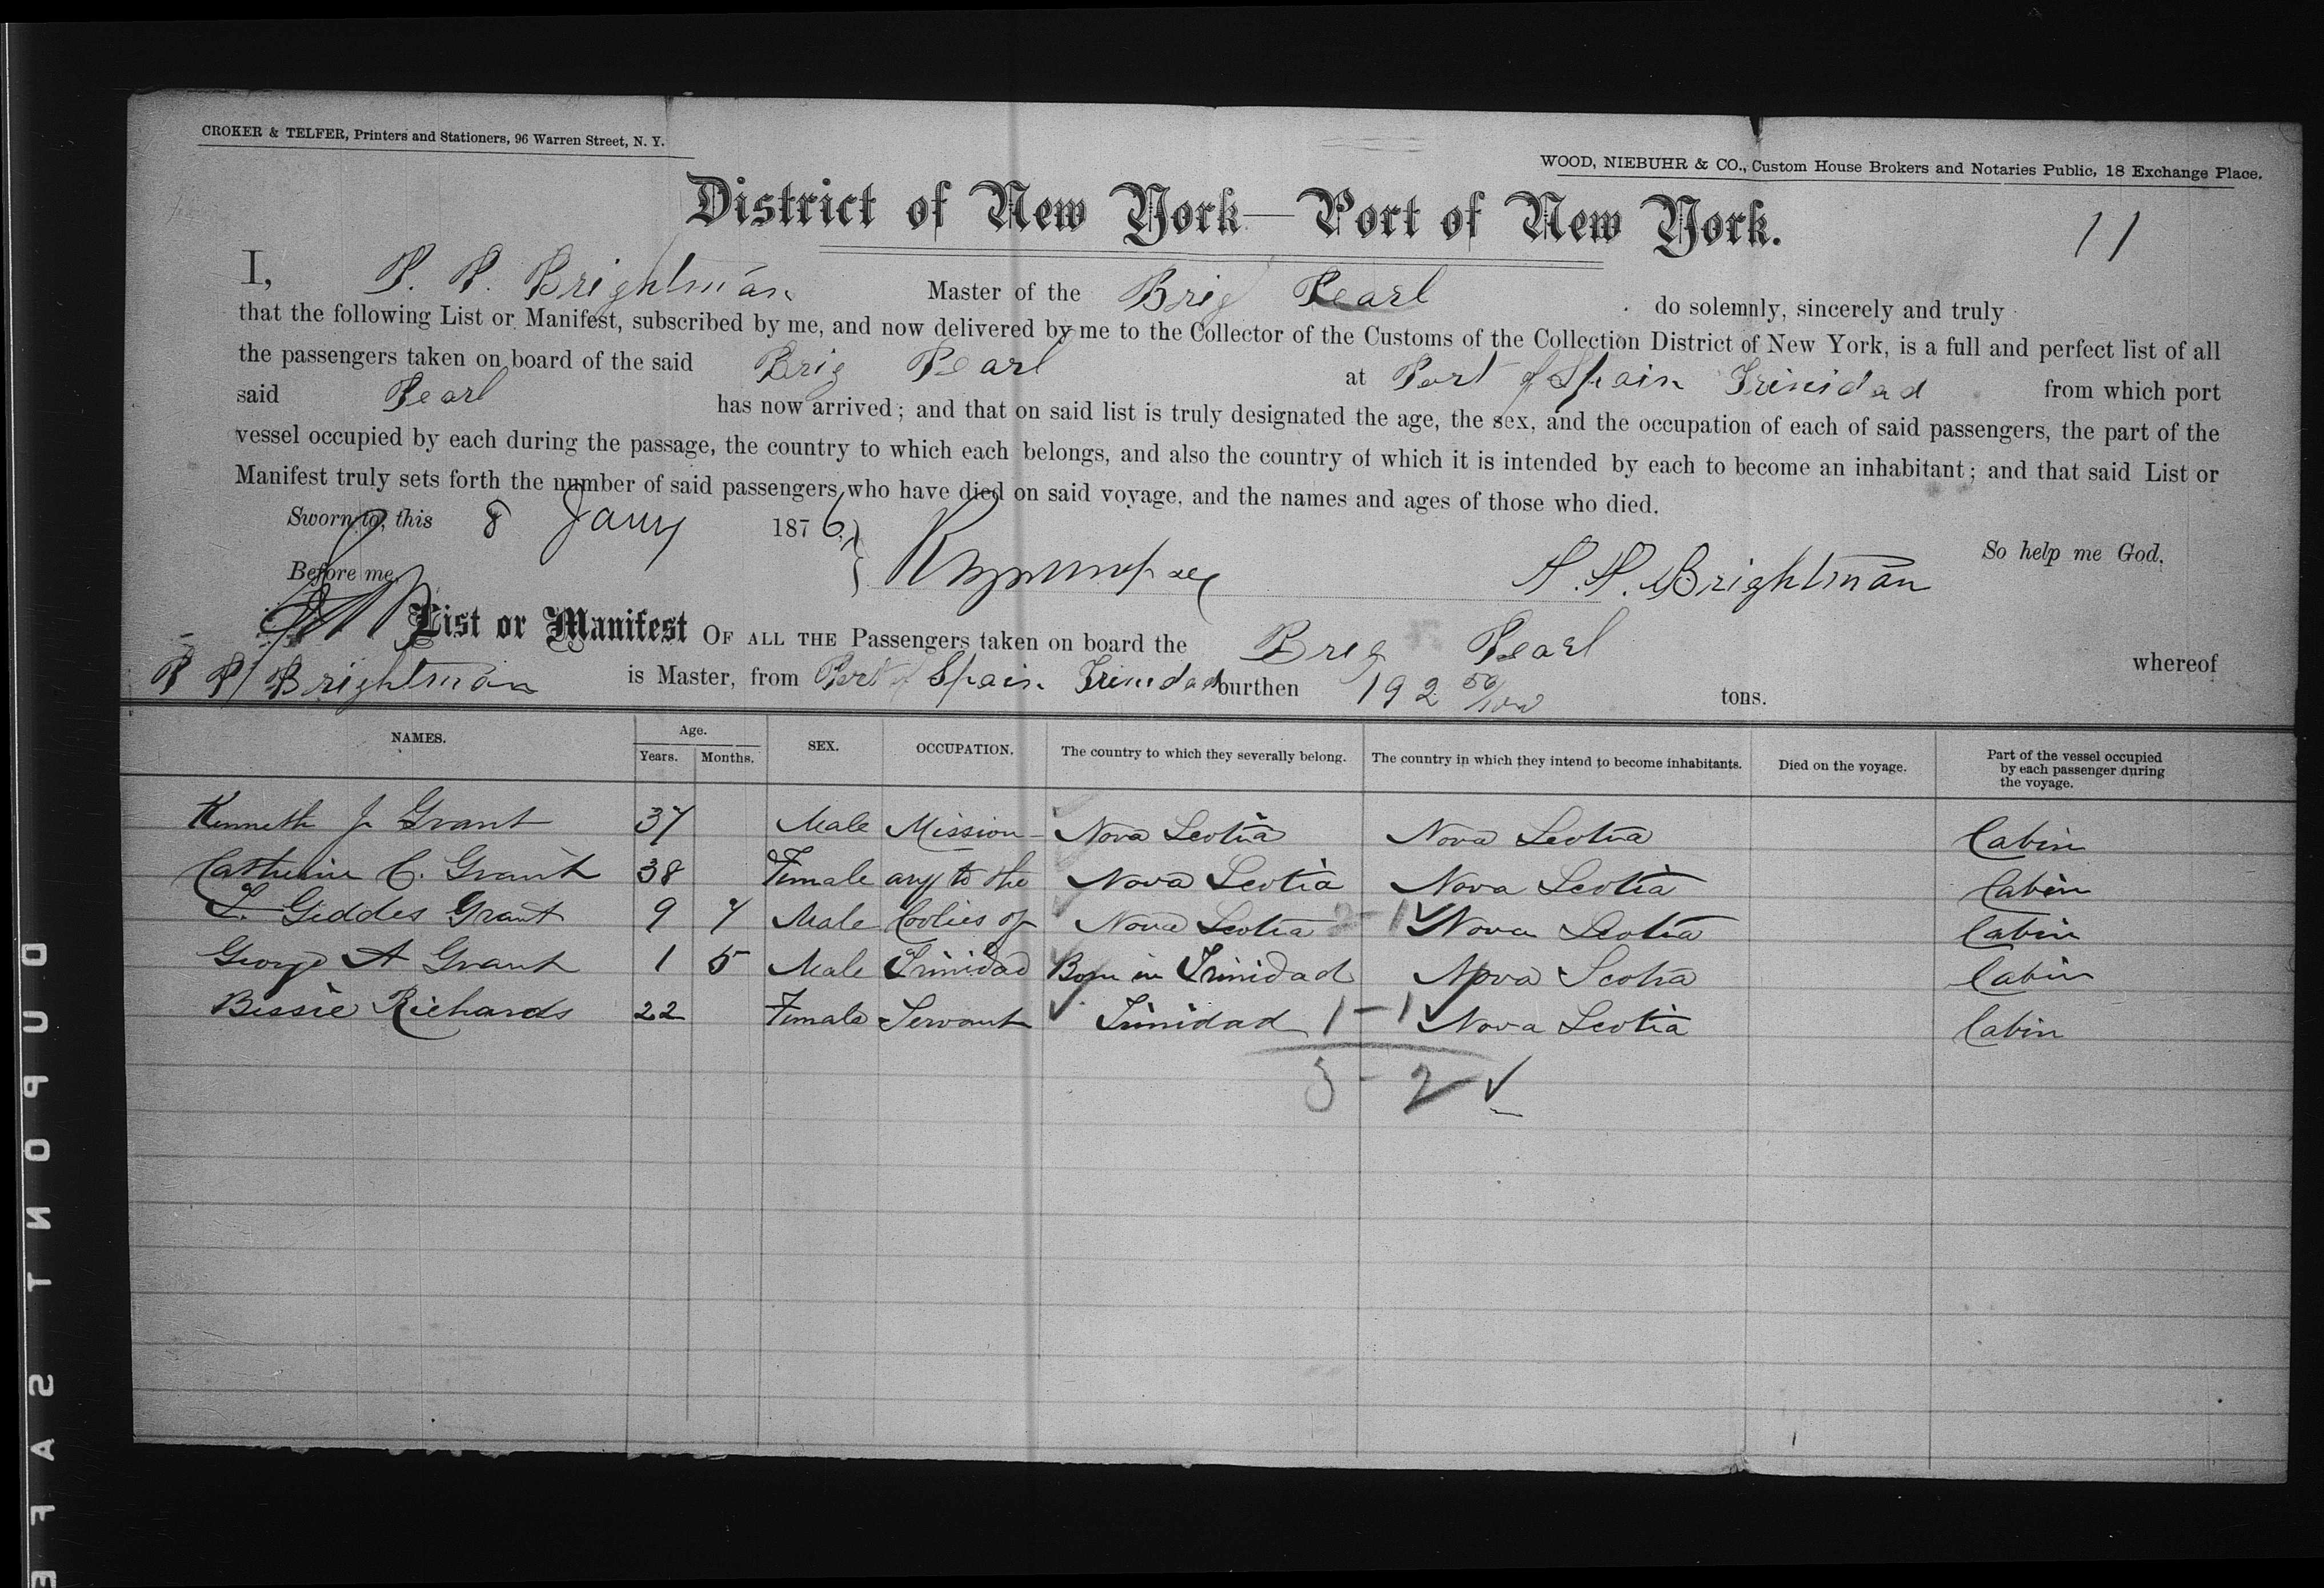 CROKER & TELFER, Printers and Stationers, 96 Warren Street, N. Y.
WOOD, NIEBUHR & CO., Custom House Brokers and Notaries Public, 18 Exchange Place.
District of New York—Port of New York.
11
I, P. P. Brightman Master of the Brig Pearl do solemnly, sincerely and truly
that the following List or Manifest, subscribed by me, and now delivered by me to the Collector of the Customs of the Collection District of New York, is a full and perfect list of all
the passengers taken on board of the said Brig Pearl at Port of Spain Trinidad from which port
said Pearl has now arrived; and that on said list is truly designated the age, the sex, and the occupation of each of said passengers, the part of the
vessel occupied by each during the passage, the country to which each belongs, and also the country of which it is intended by each to become an inhabitant; and that said List or
Manifest truly sets forth the number of said passengers who have died on said voyage, and the names and ages of those who died.
Sworn to, this 8 Jany 1876
So help me God.
Before me, P. P. Brightman
List or Manifest OF ALL THE Passengers taken on board the Brig Pearl whereof
P P Brightman is Master, from Port of Spain Trinidad burthen 192 56/100 tons.
NAMES. Age. Years. Months. SEX. OCCUPATION. The country to which they severally belong. The country in which they intend to become inhabitants. Died on the voyage. Part of the vessel occupied by each passenger during the voyage.
Kenneth J Grant 37 Male Mission- Nova Scotia Nova Scotia Cabin
Catherine C. Grant 38 Female ary to the Nova Scotia Nova Scotia Cabin
T. Geddes Grant 9 7 Male Coolies of Nova Scotia 2-1 Nova Scotia Cabin
George A Grant 1 5 Male Trinidad Born in Trinidad Nova Scotia Cabin
Bessie Richards 22 Female Servant Trinidad 1-1 Nova Scotia Cabin
3-2